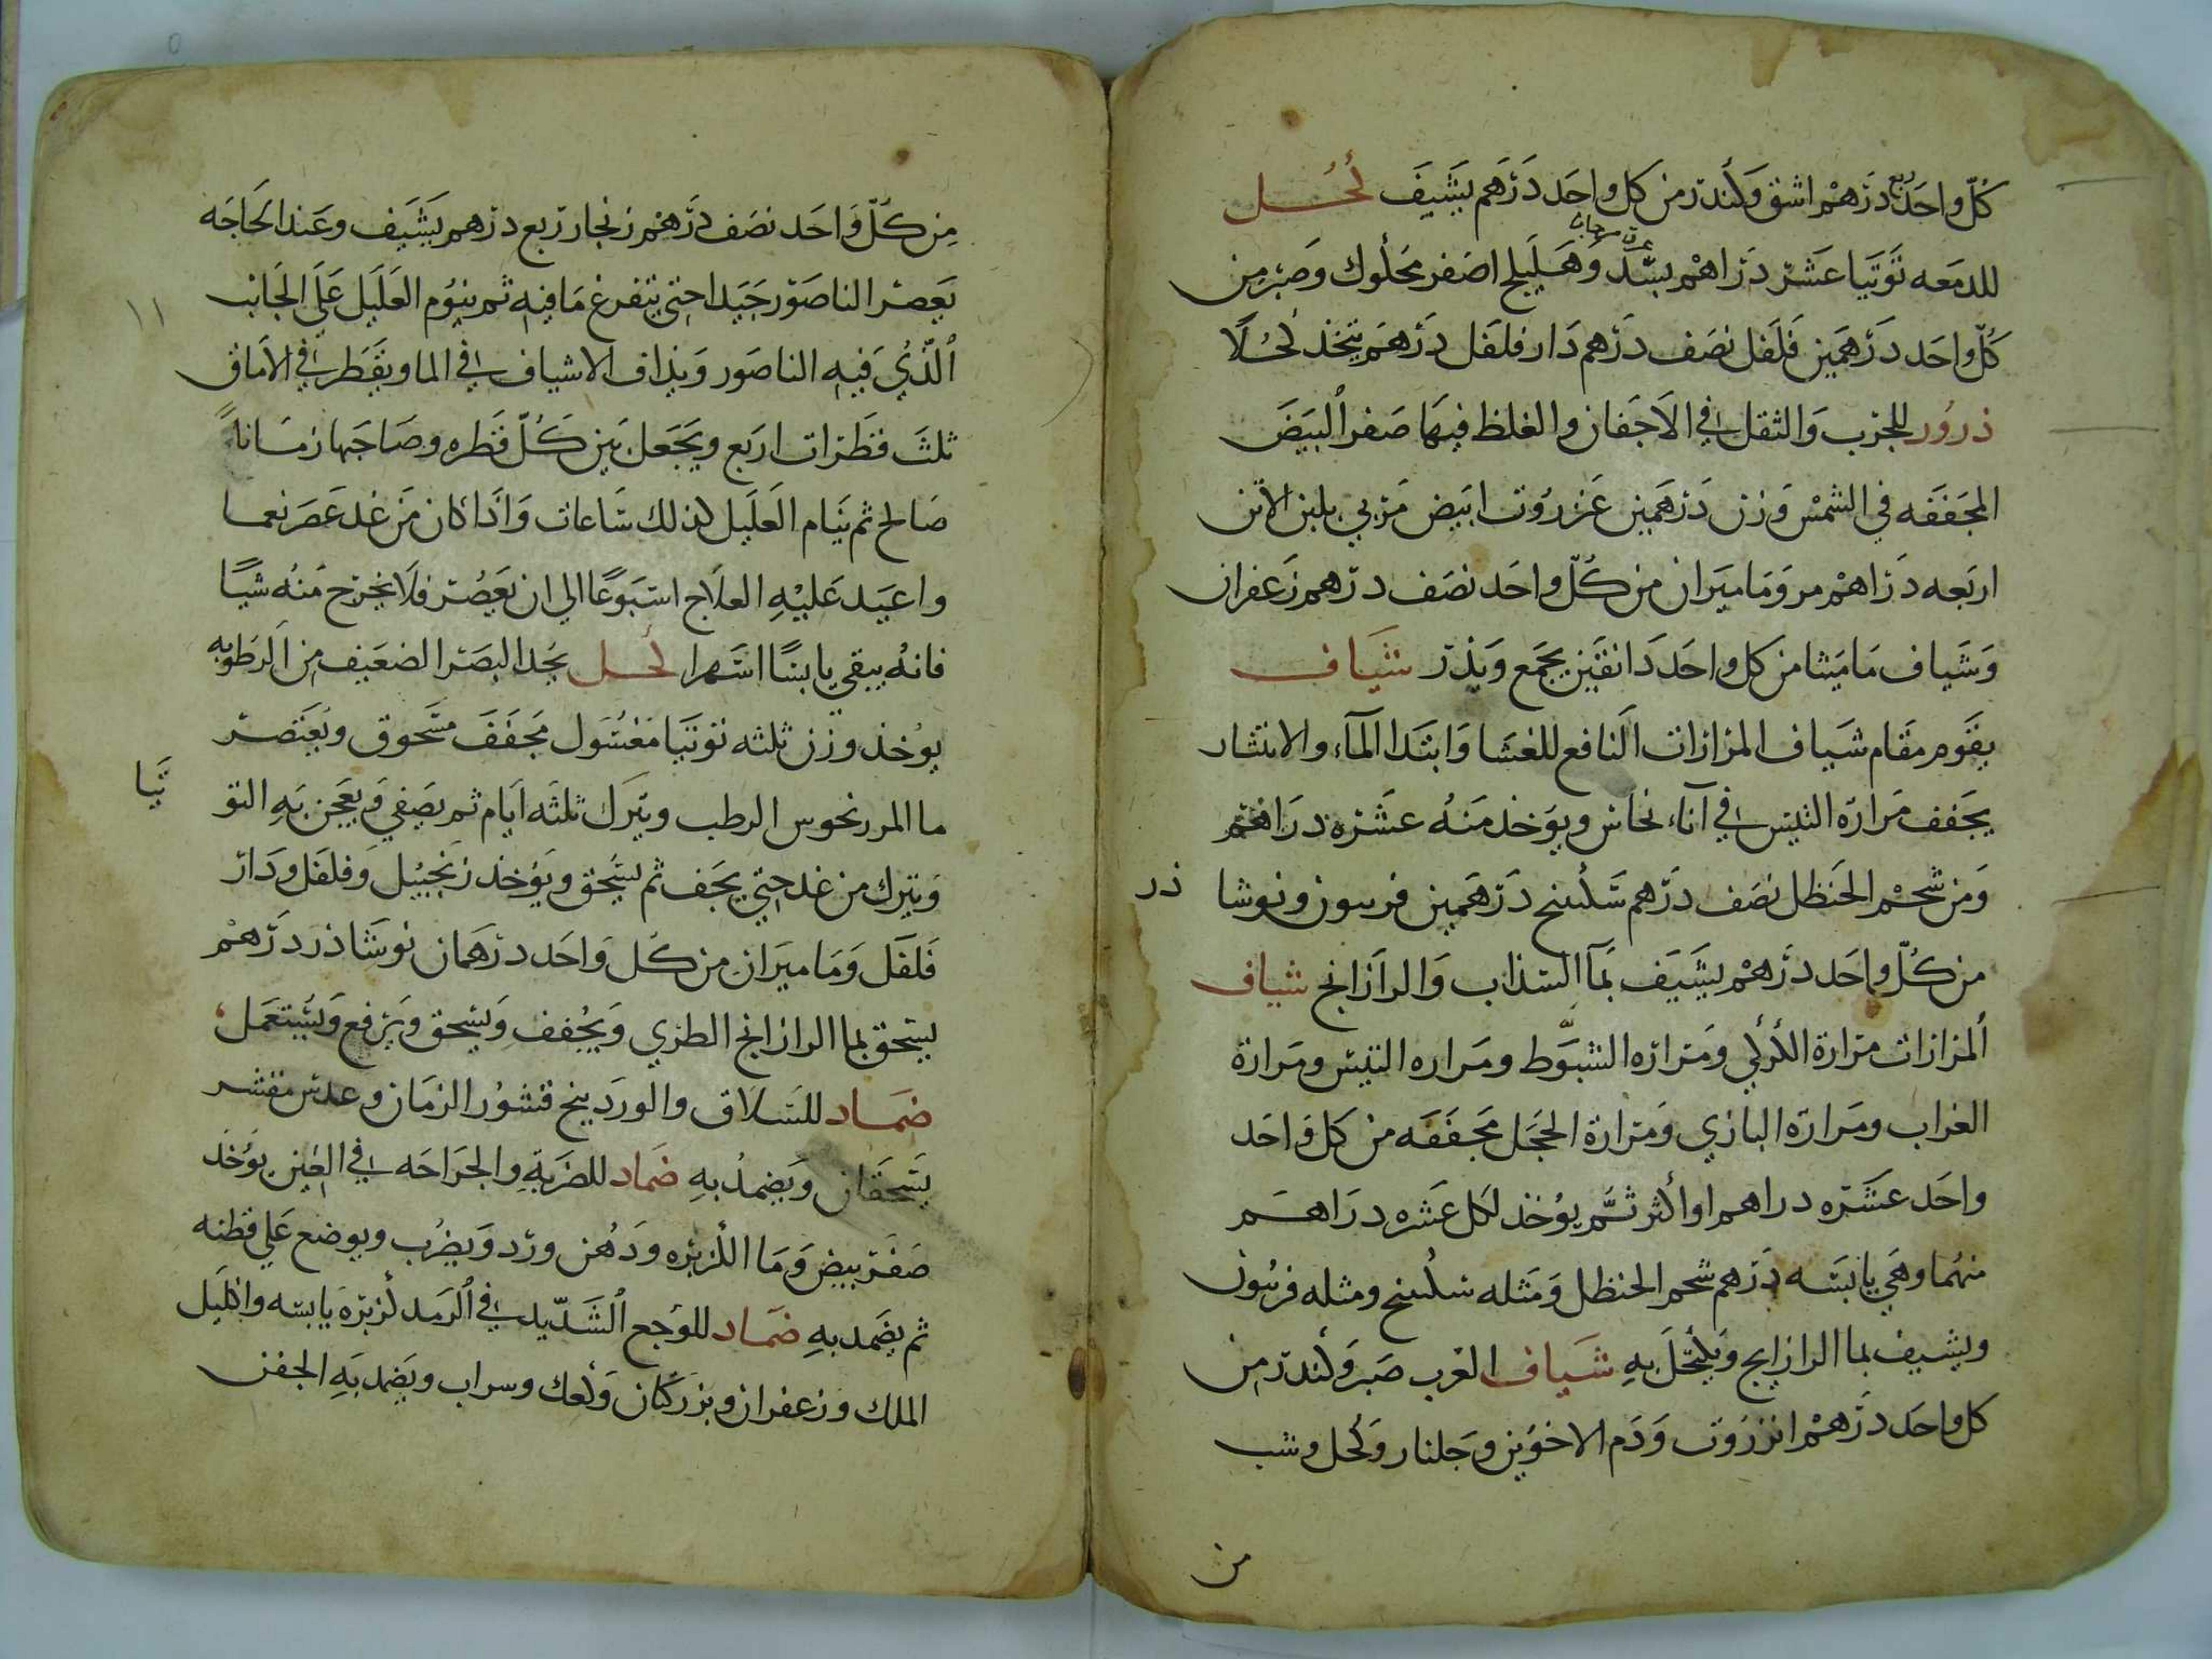 كُلّ واحَد ربع دَرْهَمْ اشق وَكندر من كل واحَد دَرْهَم يشَيفَ كُحل
للدمَعه تُوتَيَا عَشَرْ دَرَاهْم بسَّد وَهَليلَج اصَفر مَحلُوك وَصَبْر من
كلّ واحَد دَرْهَمَين فَلَفل نصَف دَرْهم دَار فلفَل دَرْهَم يتخذ كُحْلًا
ذرُور للجرب وَالثقل في الاَجَفان والغلظ فيهَا صَفر البَيَضَ
المجَفَفَه في الشمْس وَزن دَرهَمَين عَنزروُت ابَيض مَربي بلبن الاتن
اربَعه دَرَاهْم مر وَمَاميَران من كُلّ واحَد نصَف درهم زَعفران
وَشَياف مَامَيثا من كل واحَد دَانقَين يجمَع وَيذر شيَاف
يقَوم مقَام شيَاف المرَارات النَافع للغشَا وَابتدا المَآء والانتشار
يجَفف مَرارَة التيَس في آناء نحَاس ويوَخذ مَنهُ عشَره دَرَاهْم
وَمن شحْم الحَنظل نصَف دَرْهم سَكبينج دَرهَمَين فربيون ونوشا
ذر
من كُلّ واحَد دَرْهمْ يشَيَف بمَا السَذاب وَالرازيانج شياف
المرارَات مَرارة الكُركُي ومَرارَه الشبَّوط ومَراره التيَس ومَرارة
الغرَاب ومَرارَه البازي وَمَرارة الحجَل مجَفَفَه من كل وَاحَد
واحَد عشَرَه دراهم او اكثر ثمَّ يوُخذ لكل عَشره دَرَاهم
منهُما وهَي يابسَه دَرهم شحم الحنظل وَمَثله سكبينج ومثله فربيون
ويشيف بما الرازيانج وَيكتحَل بهِ شيَاف الغرب صَبَر وَكندر من
كل واحَد درْهَم انزرُوت وَدَم الاخوَين وجَلنار وَكُحل وشب
من
من كُلّ وَاحَد نصَف دَرْهَم زنجار رَبع درْهم يَشَيَف وعَند الحَاجَه
١١
يَعصَر الناصَوَر جَيَدا حتي يتفرغ مَا فيهِ ثم ينوُم العَليَل عَلَي الجَانب
الَّذيُ فَيهِ الناصَور وَيذاف الاشياف في الما ويقَطَر في الاَماق
ثلثَ قَطرَات اربَع ويَجَعل بَين كُلّ قَطره وصَاحَبها زمَاناً
صَالح ثم يَنام العَليَل كذلك سَاعات وَاذَا كان مَن غد عَصَر نعما
واعيَد عَليْهِ العلاَج اسَبوُعًا الي ان يَعصُر فلاَ يخرَج مَنهُ شيًا
فانهُ يبقي يابسًا اشَهرا كُحل يحُد البصَر الضعَيف من الرَطوبه
يوُخذ وزن ثلثه توتيَا مَغسُول مجَفَفَ مسَحوق ويُعتصَر
ما المررنحوس الرطب ويترَك ثلثَه اَيام ثم يصَفي وَيعجَن بَهِ التو
تَيا
وَيترك من غد حتي يجَف ثم يسَحق ويَؤخذ زنجبيُل وَفلفَل ودَار
فَلفَل وَمَاميرَان من كُل وَاحَد درهَمان نوشَاذر دَرْهَمْ
يسحق بما الرازيانج الطري وَيُجفف وَيسَحق وَيَرفع وَيُستعمَل
ضمَاد للسَلاَق والوردَينج قشوُر الرمَان وعدس مقشر
يَسَحَقان وَيَضمدُ بهِ ضمَاد للضربَةِ والجرَاحَه في العَين يوَُخذ
صَفَرَ بيض وَمَا الكُزبَره ودَهُن ورَد وَيضرُب ويوضع عَلي قطنه
ثم يضَمد بهِ ضمَاد للوَجع الشَدّيد في الرَمد كزبرَة يابسَه واكليَل
الملك وزعفران وبزر كتان وَكعك وسراب ويَضمد بَهِ الجفن